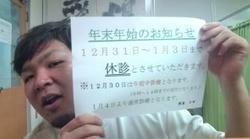 年末年始のお知らせ
12月31日～1月3日まで
休診とさせていただきます。
※12月30日は午前中診療となります。
1月4日より通常診療となります。